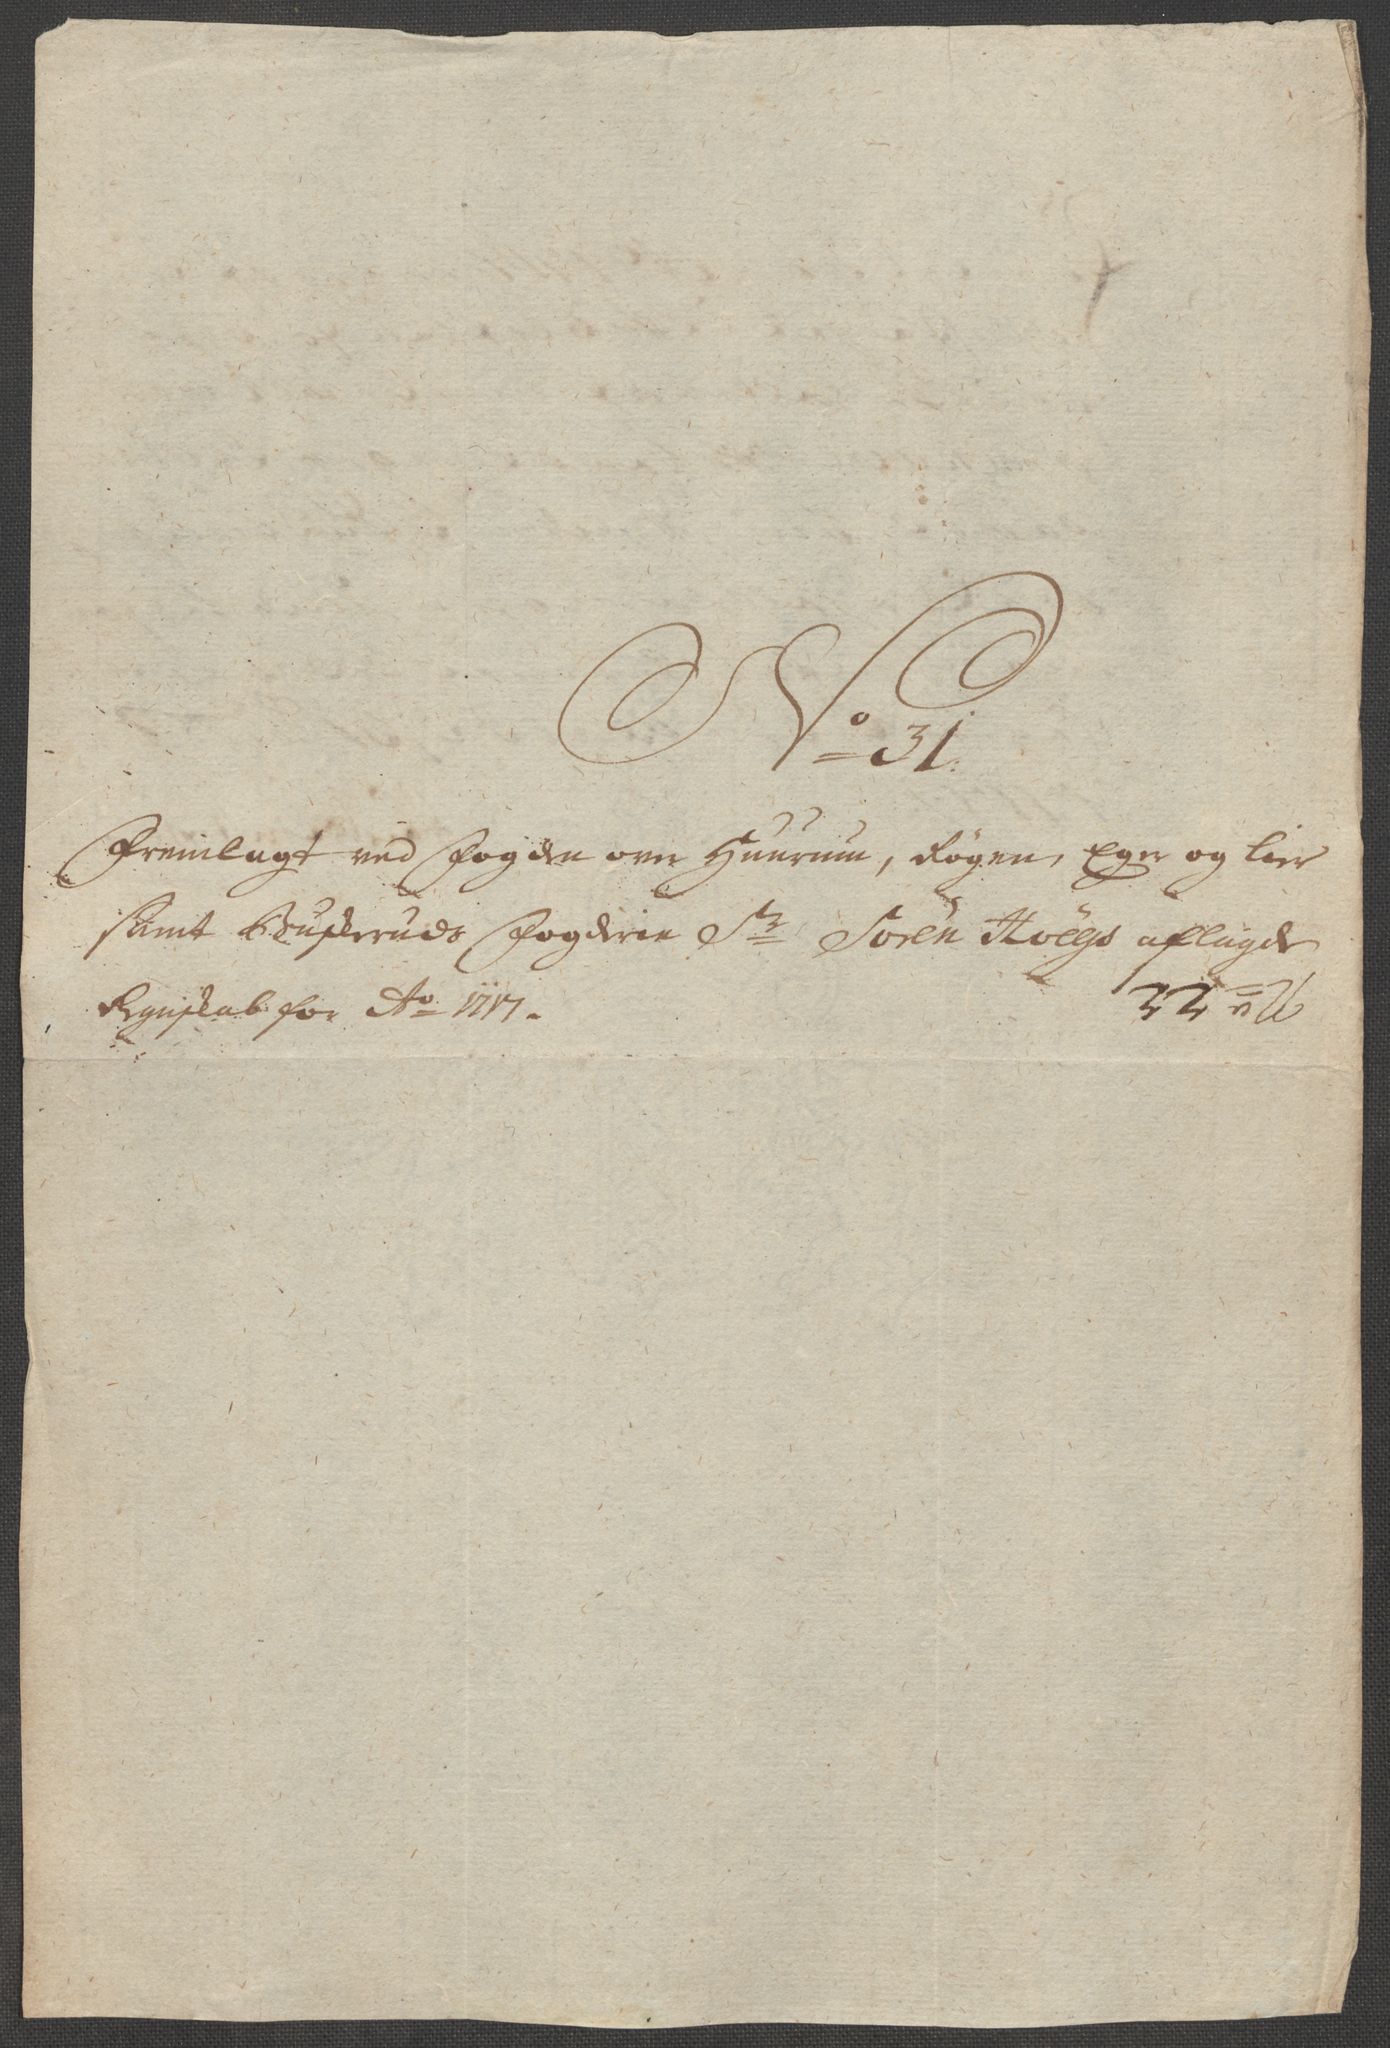 No 31.
Fremlagt ved Fogden over Huurum, Røgen, Eger og Lier
samt Buskeruds Fogderie Sr Soren Hoegs aflagde
Regnskab for Ao 1717.